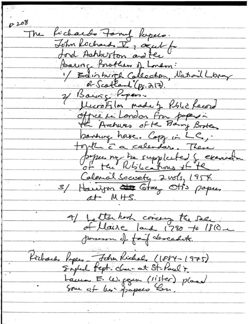 p. 208
The Richards Family Papers.
John Richards V, agent for
Lord Ashburton and the
Baring Brothers of London:
1/ Edinburgh Collection, National Library
of Scotland (p. 217).
2/ Baring Papers.
Microfilm made by Public Record
Office in London from papers in
the Archives of the Baring Brothers
banking house. Copy in L.C.,
together with a calendar. These
papers may be supplemented by examination
of the Publications of the
Colonial Society 2 vols, 1954
3/ Harrison Gray Otis papers
at MHS.
4/ Letter book covering the sale
of Maine land 1790 to 1810 in
possession of family descendants.
Richards Papers - John Richards (1884-1975)
English Dept. chair at St. Paul's.
Laura E. Wiggins (sister) placed
some of his papers